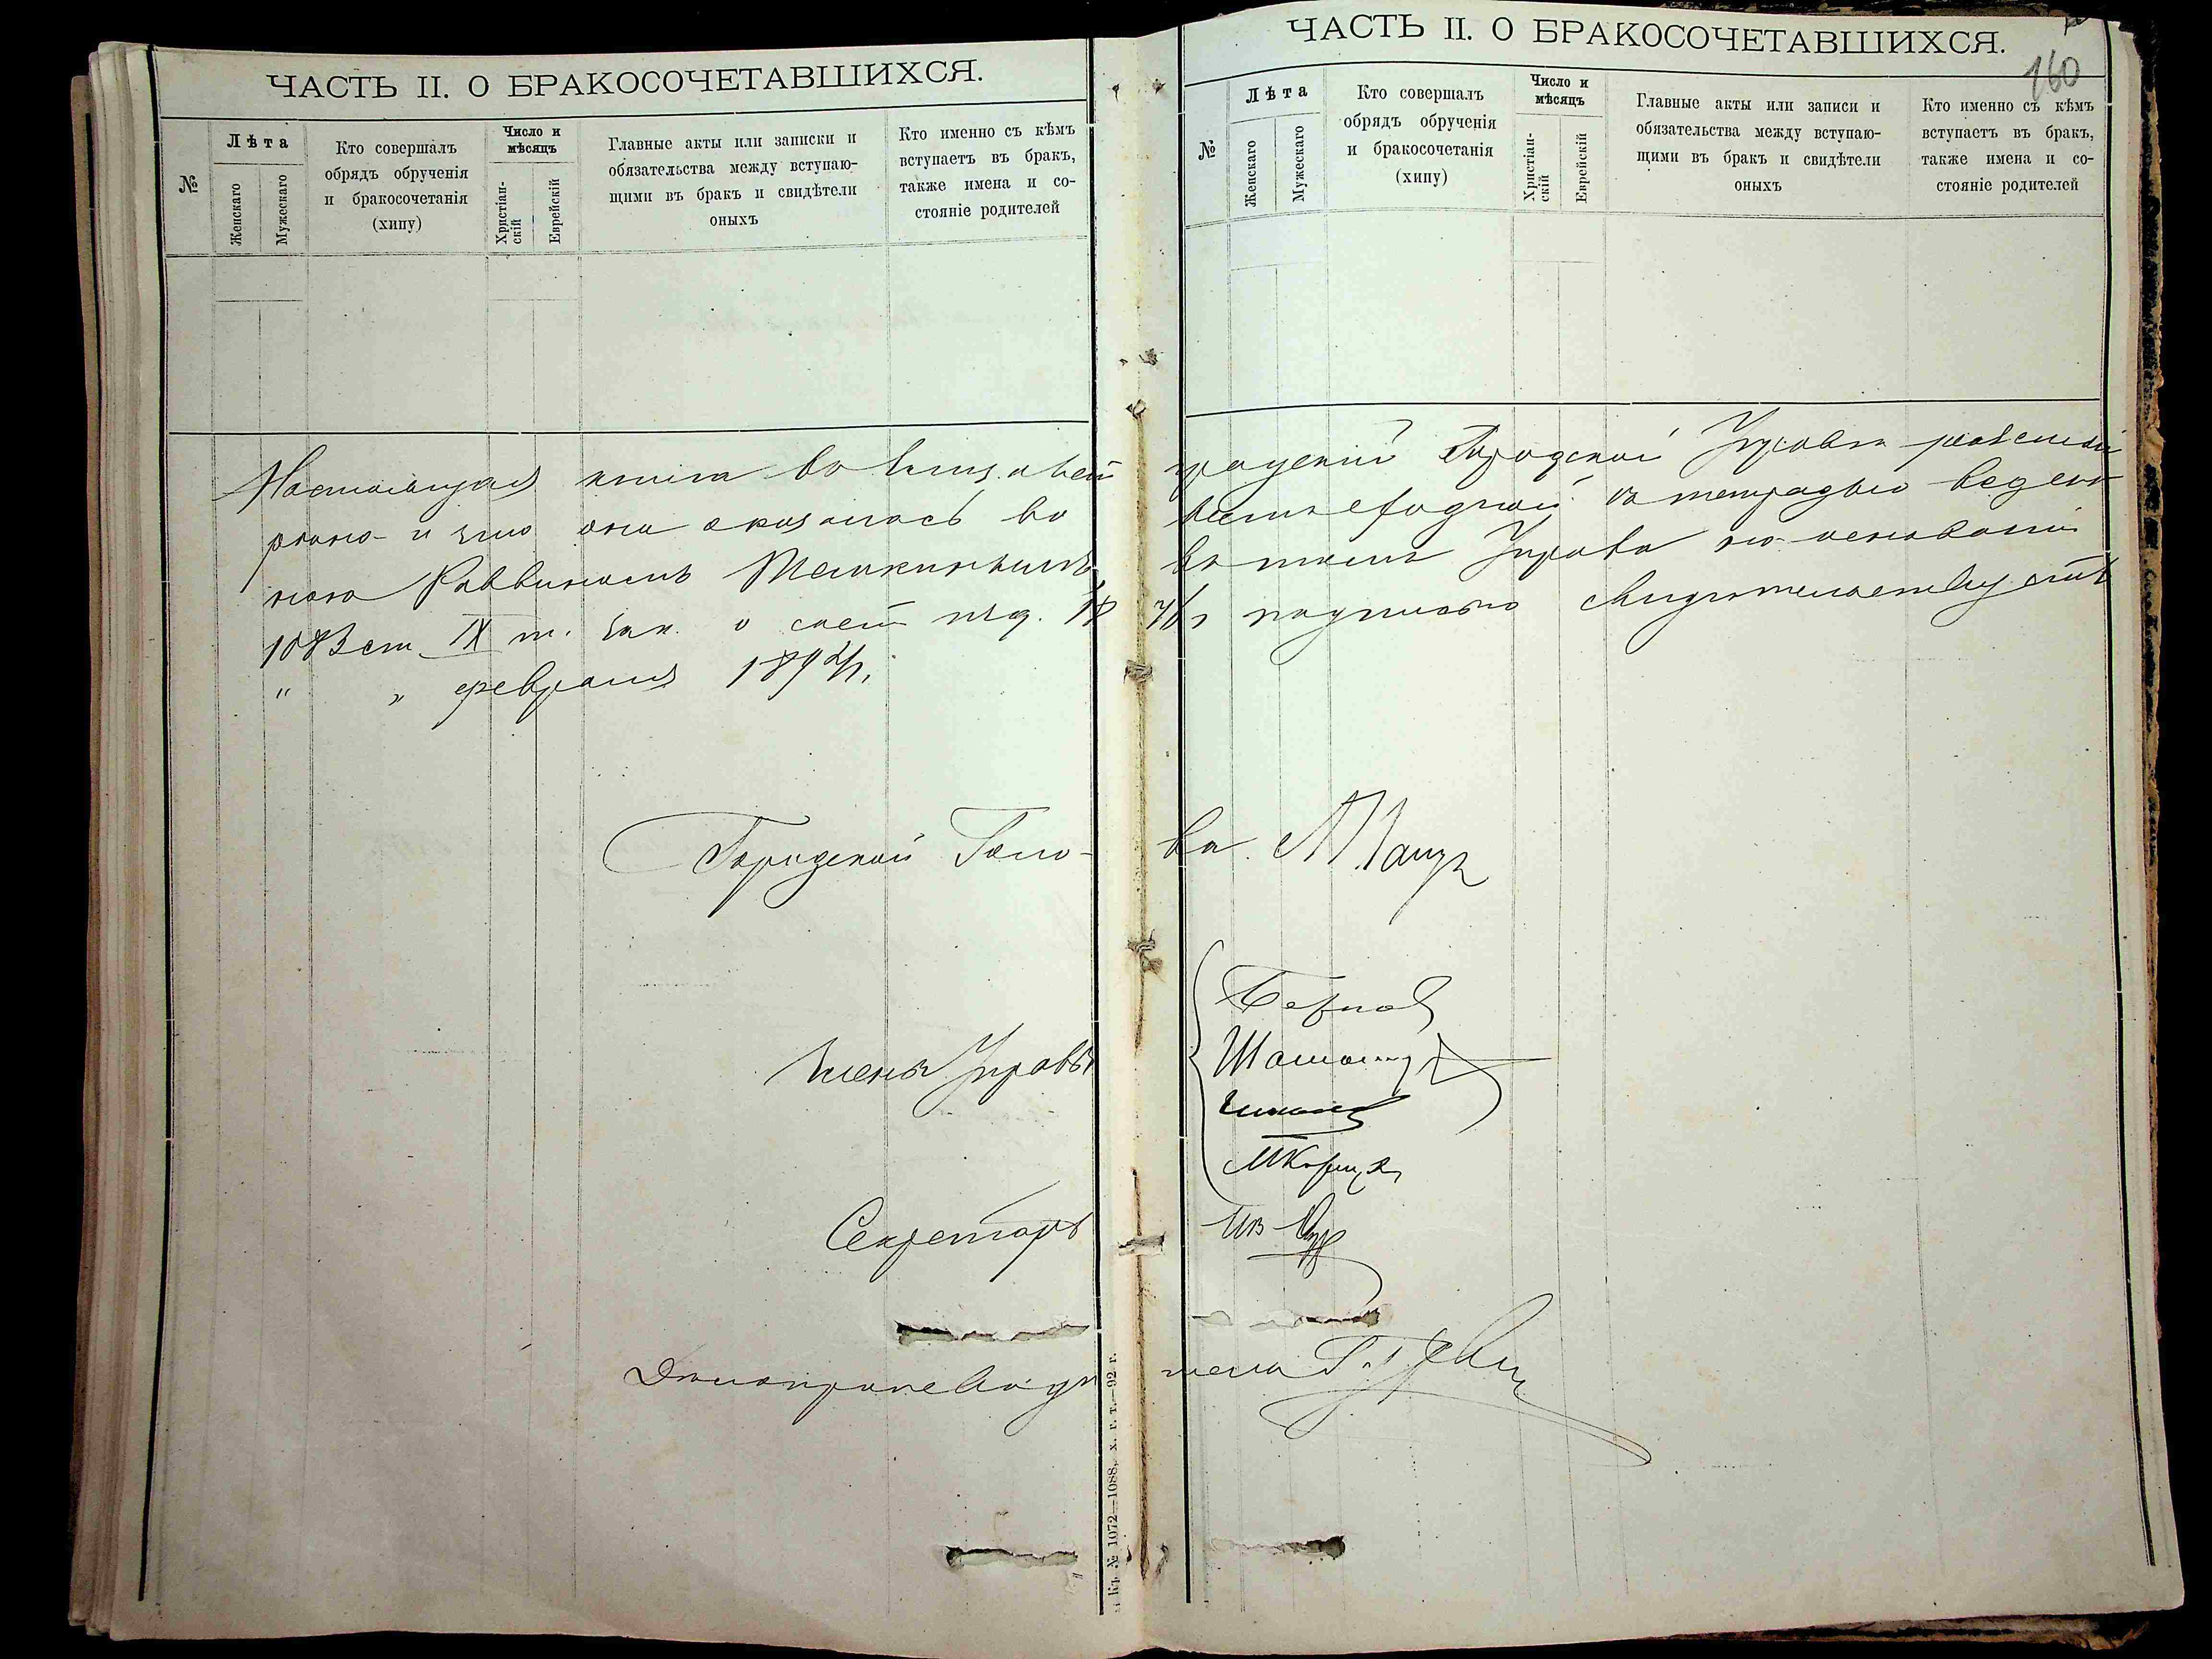 ЧАСТЬ II. О БРАКОСОЧЕТАВШИХСЯ.
№
Лѣта
Женскаго
Мужескаго
Кто совершалъ
обрядъ обрученія
и бракосочетанія
(хипу)
Число и
мѣсяцъ
Христіан-
скій
Еврейскій
Главные акты или записки и
обязательства между вступаю-
щими въ бракъ и свидѣтели
оныхъ
Кто именно съ кѣмъ
вступаетъ въ бракъ,
также имена и со-
стояніе родителей
ЧАСТЬ II. О БРАКОСОЧЕТАВШИХСЯ.
160
№
Лѣта
Женскаго
Мужескаго
Кто совершалъ
обрядъ обрученія
и бракосочетанія
(хипу)
Число и
мѣсяцъ
Христіан-
скій
Еврейскій
Главные акты или записи и
обязательства между вступаю-
щими въ бракъ и свидѣтели
оныхъ
Кто именно съ кѣмъ
вступаетъ въ бракъ,
также имена и со-
стояніе родителей
Настоящая книга въ Елизаветградской Городской Управѣ
и что она оказалась въ вѣрна съ другой тетрадью веден
ною Раввиномъ въ томъ Управа на основаніи
1083 ст. IX т. Зак. о сост. изд. 1876 подписью свидѣтельствуетъ
" " февраля 1894 г.
Городской Голова
Члены Управы
Секретарь
Дѣлопроизводитель
Къ № 1072—1088, х. г. т.—92 г.